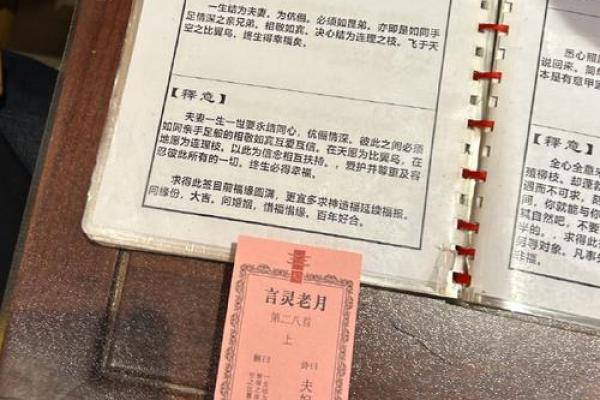 一生结为夫妻。为伉俪。必须如昆弟。亦即是如同手
足情深之亲兄弟。相敬如宾。决心结为连理之枝。飞于天
空之比翼鸟。终生得幸福矣。
【释意】
夫妻一生一世要永结同心，伉俪情深。彼此之间必须
如同亲手足般的相敬如宾互爱互信。在天愿为比翼鸟，在
地愿为连理枝。以此为信念相互扶持。，爱护并尊更及容
忍彼此所有的一切。终生必得幸福。
求得此签目前福缘圆满，更宜多求神造福延续福报。
问缘份，大吉。问婚姻，惜福惜缘。百年好合。
悉心照
说回来。简
本是有意甲
【释意】
全心全意来
殖柳枝。却蓬勃
遇而不可求。刻
问，你就能与你
其自然吧。不要
学的。求得此
另寻对象。凡事
非福。
言灵老月
第二八首
上
诗曰
夫
解曰
一生结